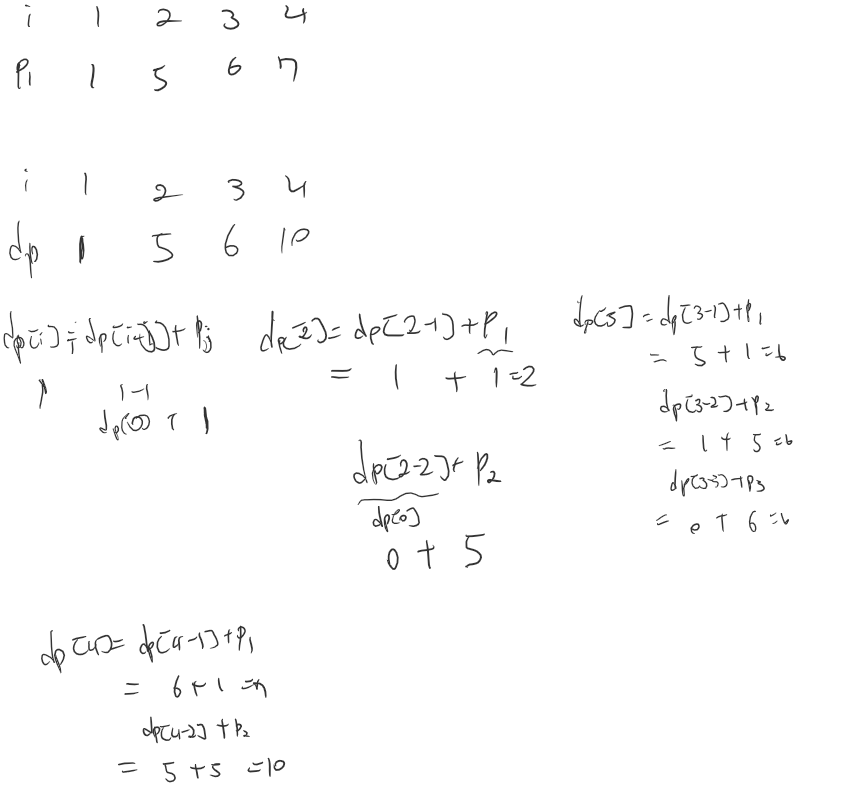 i 1 2 3 4
Pi 1 5 6 7
i 1 2 3 4
dp 1 5 6 10
dp[i] = dp[i-j] + Pj
1 1-1
dp[0] + 1
dp[2] = dp[2-1] + P1
= 1 + 1 = 2
dp[2-2] + P2
dp[0]
0 + 5
dp[3] = dp[3-1] + P1
= 5 + 1 = 6
dp[3-2] + P2
= 1 + 5 = 6
dp[3-3] + P3
= 0 + 6 = 6
dp[4] = dp[4-1] + P1
= 6 + 1 = 7
dp[4-2] + P2
= 5 + 5 = 10